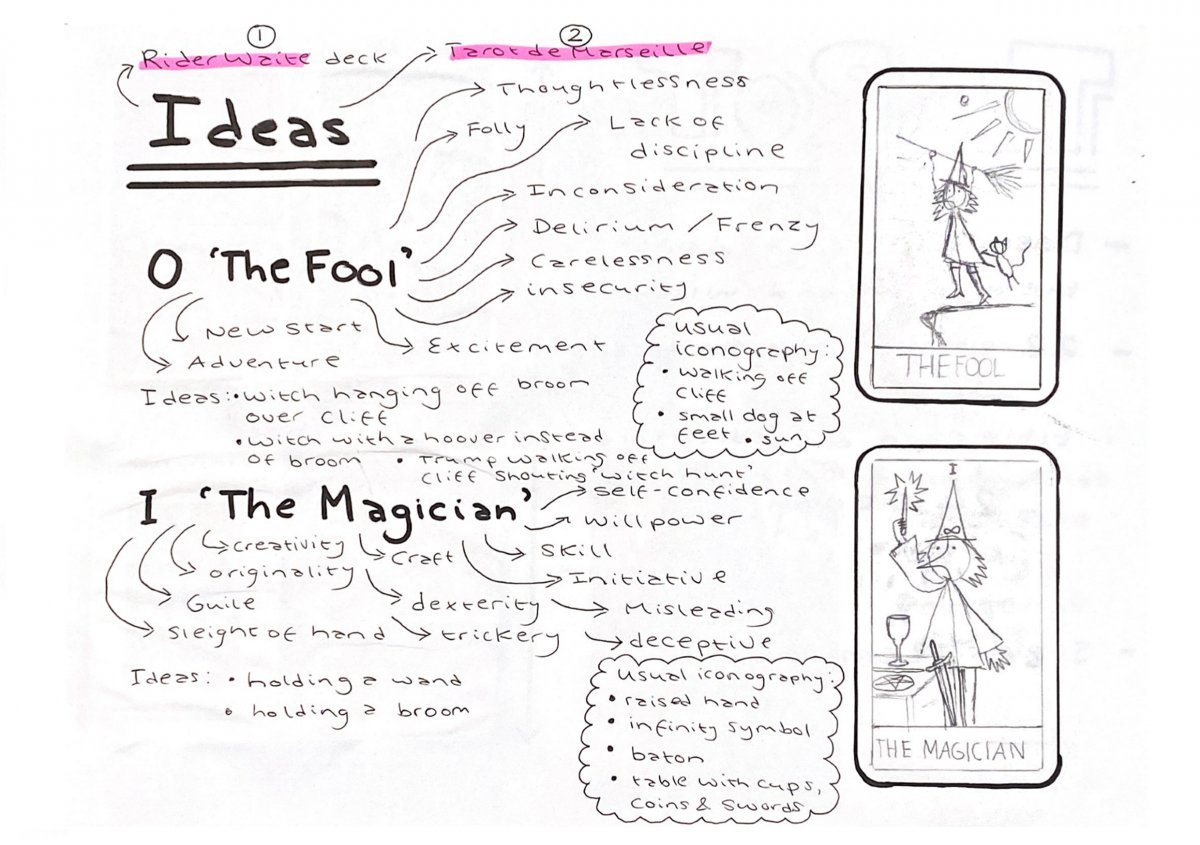 ①
②
Rider Waite deck
Tarot de Marseille
Ideas
Thoughtlessness
Folly
Lack of
discipline
Inconsideration
Delirium / Frenzy
Carelessness
insecurity
O 'The Fool'
New start
Adventure
Excitement
Ideas: • witch hanging off broom
over cliff
• witch with a hoover instead
of broom • Trump walking off
cliff shouting 'witch hunt'
usual
iconography:
• walking off
cliff
• small dog at
feet • sun
THE FOOL
I 'The Magician'
self-confidence
willpower
skill
Initiative
Misleading
deceptive
creativity
craft
originality
Guile
dexterity
sleight of hand
trickery
Ideas: • holding a wand
• holding a broom
usual iconography:
• raised hand
• infinity symbol
• baton
• table with cups,
coins & swords
I
THE MAGICIAN